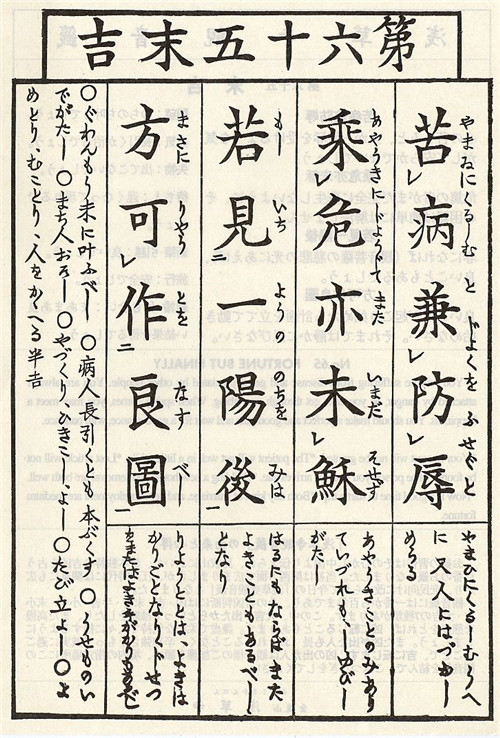 第六十五末吉
やまゐにくるしむと ぢよくをふせぐ
苦レ病兼レ防レ辱
やまひにくるしむうへ
に又人にはづかし
めらるる
あやうきにようてまた いまだ そせず
乘レ危亦未レ穌
あやうきことのみあり
ていづれも、しゆびし
がたし
もし いち ようの のちを みば
若見二一陽後一
はるにもならばまた
よきこともあるべし
となり
まさに りやう とを なす べし
方可レ作二良圖一
りよととは、よきは
かりごとなり
○ぐわんもう末に叶ふべし ○病人長引くとも本ぶくす ○うせものい
でがたし ○まち人おそし ○やづくり、ひきこしよし ○たび立よし ○よ
めとり、むことり、人をかゝへる半吉